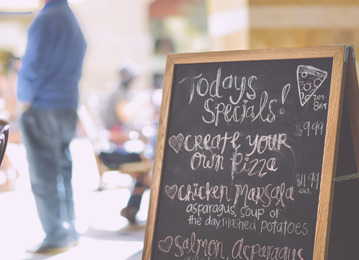 Todays
Specials!
$9.99
♡create your
own pizza
♡chicken Marsala $11.99
asparagus, soup of
the day, mashed potatoes
♡Salmon, Asparagus